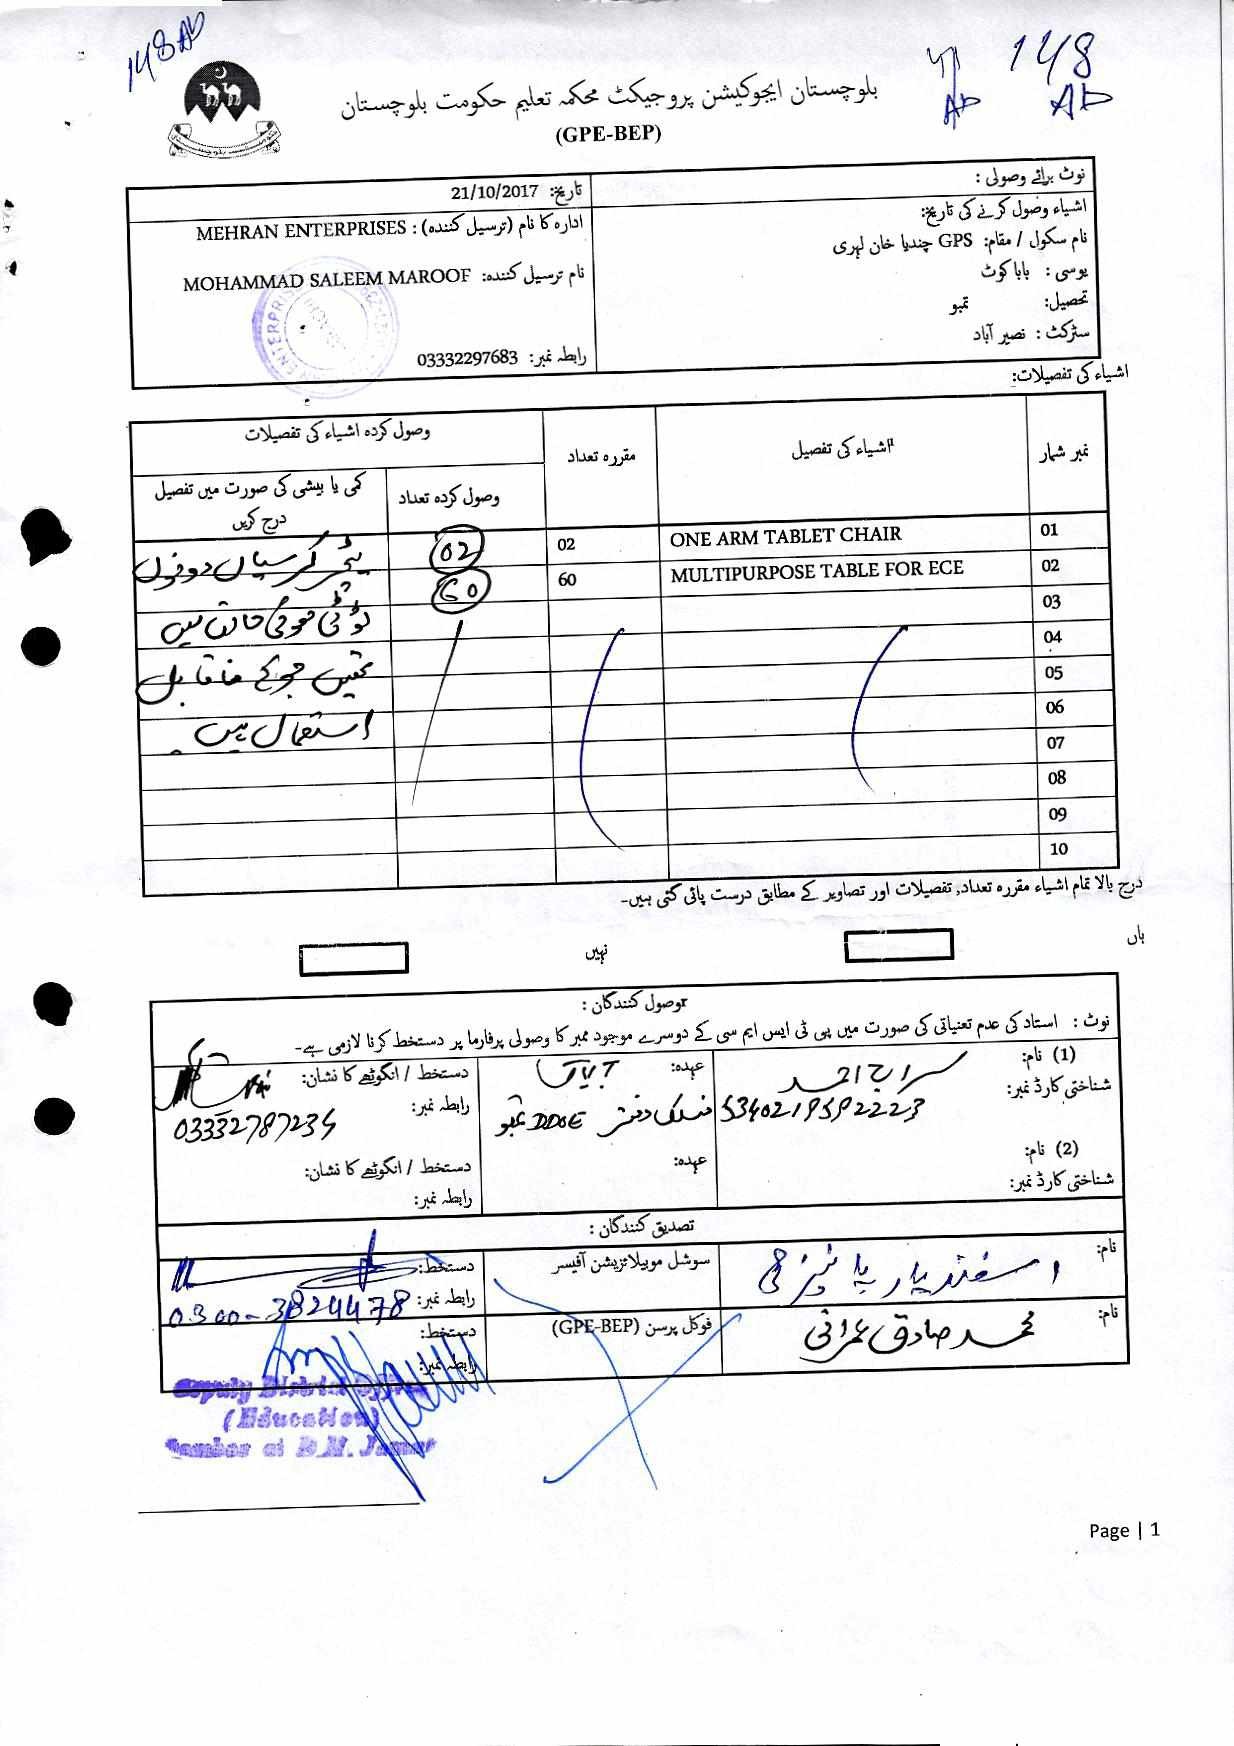 148 Ab
148
Ab
Ab
بلوچستان ایجوکیشن پروجیکٹ محکمہ تعلیم حکومت بلوچستان
(GPE-BEP)
نوٹ برائے وصولی :
اشیاء وصول کرنے کی تاریخ:
نام سکول / مقام: GPS چندیا خان لہری
یوسی : بابا کوٹ
تحصیل: تمبو
سٹرکٹ : نصیر آباد
تاریخ: 21/10/2017
ادارہ کا نام (ترسیل کنندہ) : MEHRAN ENTERPRISES
نام ترسیل کنندہ: MOHAMMAD SALEEM MAROOF
رابطہ نمبر: 03332297683
اشیاء کی تفصیلات:
نمبر شمار
اشیاء کی تفصیل
مقررہ تعداد
وصول کردہ اشیاء کی تفصیلات
وصول کردہ تعداد
کمی یا بیشی کی صورت میں تفصیل
درج کریں
01 ONE ARM TABLET CHAIR 02 02 ٹیچر کرسیاں دونوں
02 MULTIPURPOSE TABLE FOR ECE 60 60
03 ٹوٹی ہوئی حالت میں
04
05 تھیں جو کہ ناقابل
06 استعمال ہیں
07
08
09
10
درج بالا تمام اشیاء مقررہ تعداد, تفصیلات اور تصاویر کے مطابق درست پائی گئی ہیں۔
ہاں
نہیں
وصول کنندگان :
نوٹ : استاد کی عدم تعنیاتی کی صورت میں پی ٹی ایس ایم سی کے دوسرے موجود ممبر کا وصولی پرفارما پر دستخط کرنا لازمی ہے۔
(1) نام: سراج احمد
شناختی کارڈ نمبر: 5340219592223
عہدہ:
دفتر DDOE تمبو
دستخط / انگوٹھے کا نشان:
رابطہ نمبر:
03332787234
(2) نام:
شناختی کارڈ نمبر:
عہدہ:
دستخط / انگوٹھے کا نشان:
رابطہ نمبر:
تصدیق کنندگان :
نام: اسفند یار
سوشل موبیلائزیشن آفیسر
دستخط:
رابطہ نمبر: 0300-3824478
نام: محمد صادق عمرانی
فوکل پرسن (GPE-BEP)
دستخط:
رابطہ نمبر:
Deputy District
(Education)
Page | 1